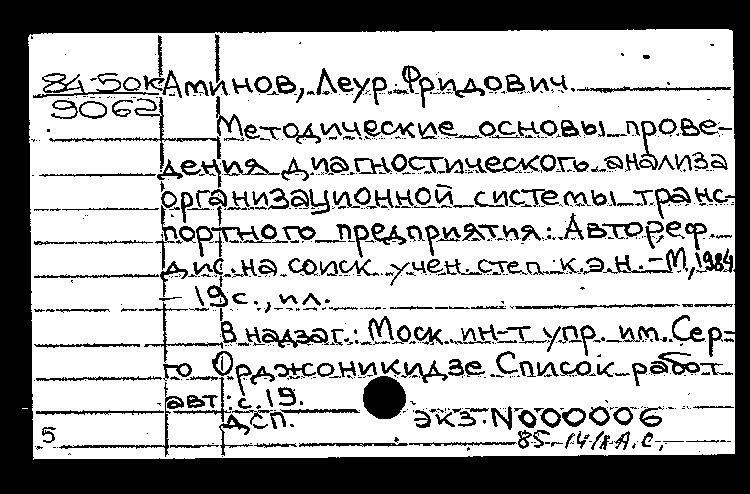 84-50к Аминов, Леур Фридович.
9062
Методические основы прове-
дения диагностического анализа
организационной системы транс-
портного предприятия: Автореф.
дис. на соиск. учен. степ. к.э.н. – М, 1984
– 19 с., ил.
В надзаг.: Моск. ин-т упр. им. Сер-
го Орджоникидзе. Список работ
авт.: с. 19.
ДСП. экз. N000006
5 85-14